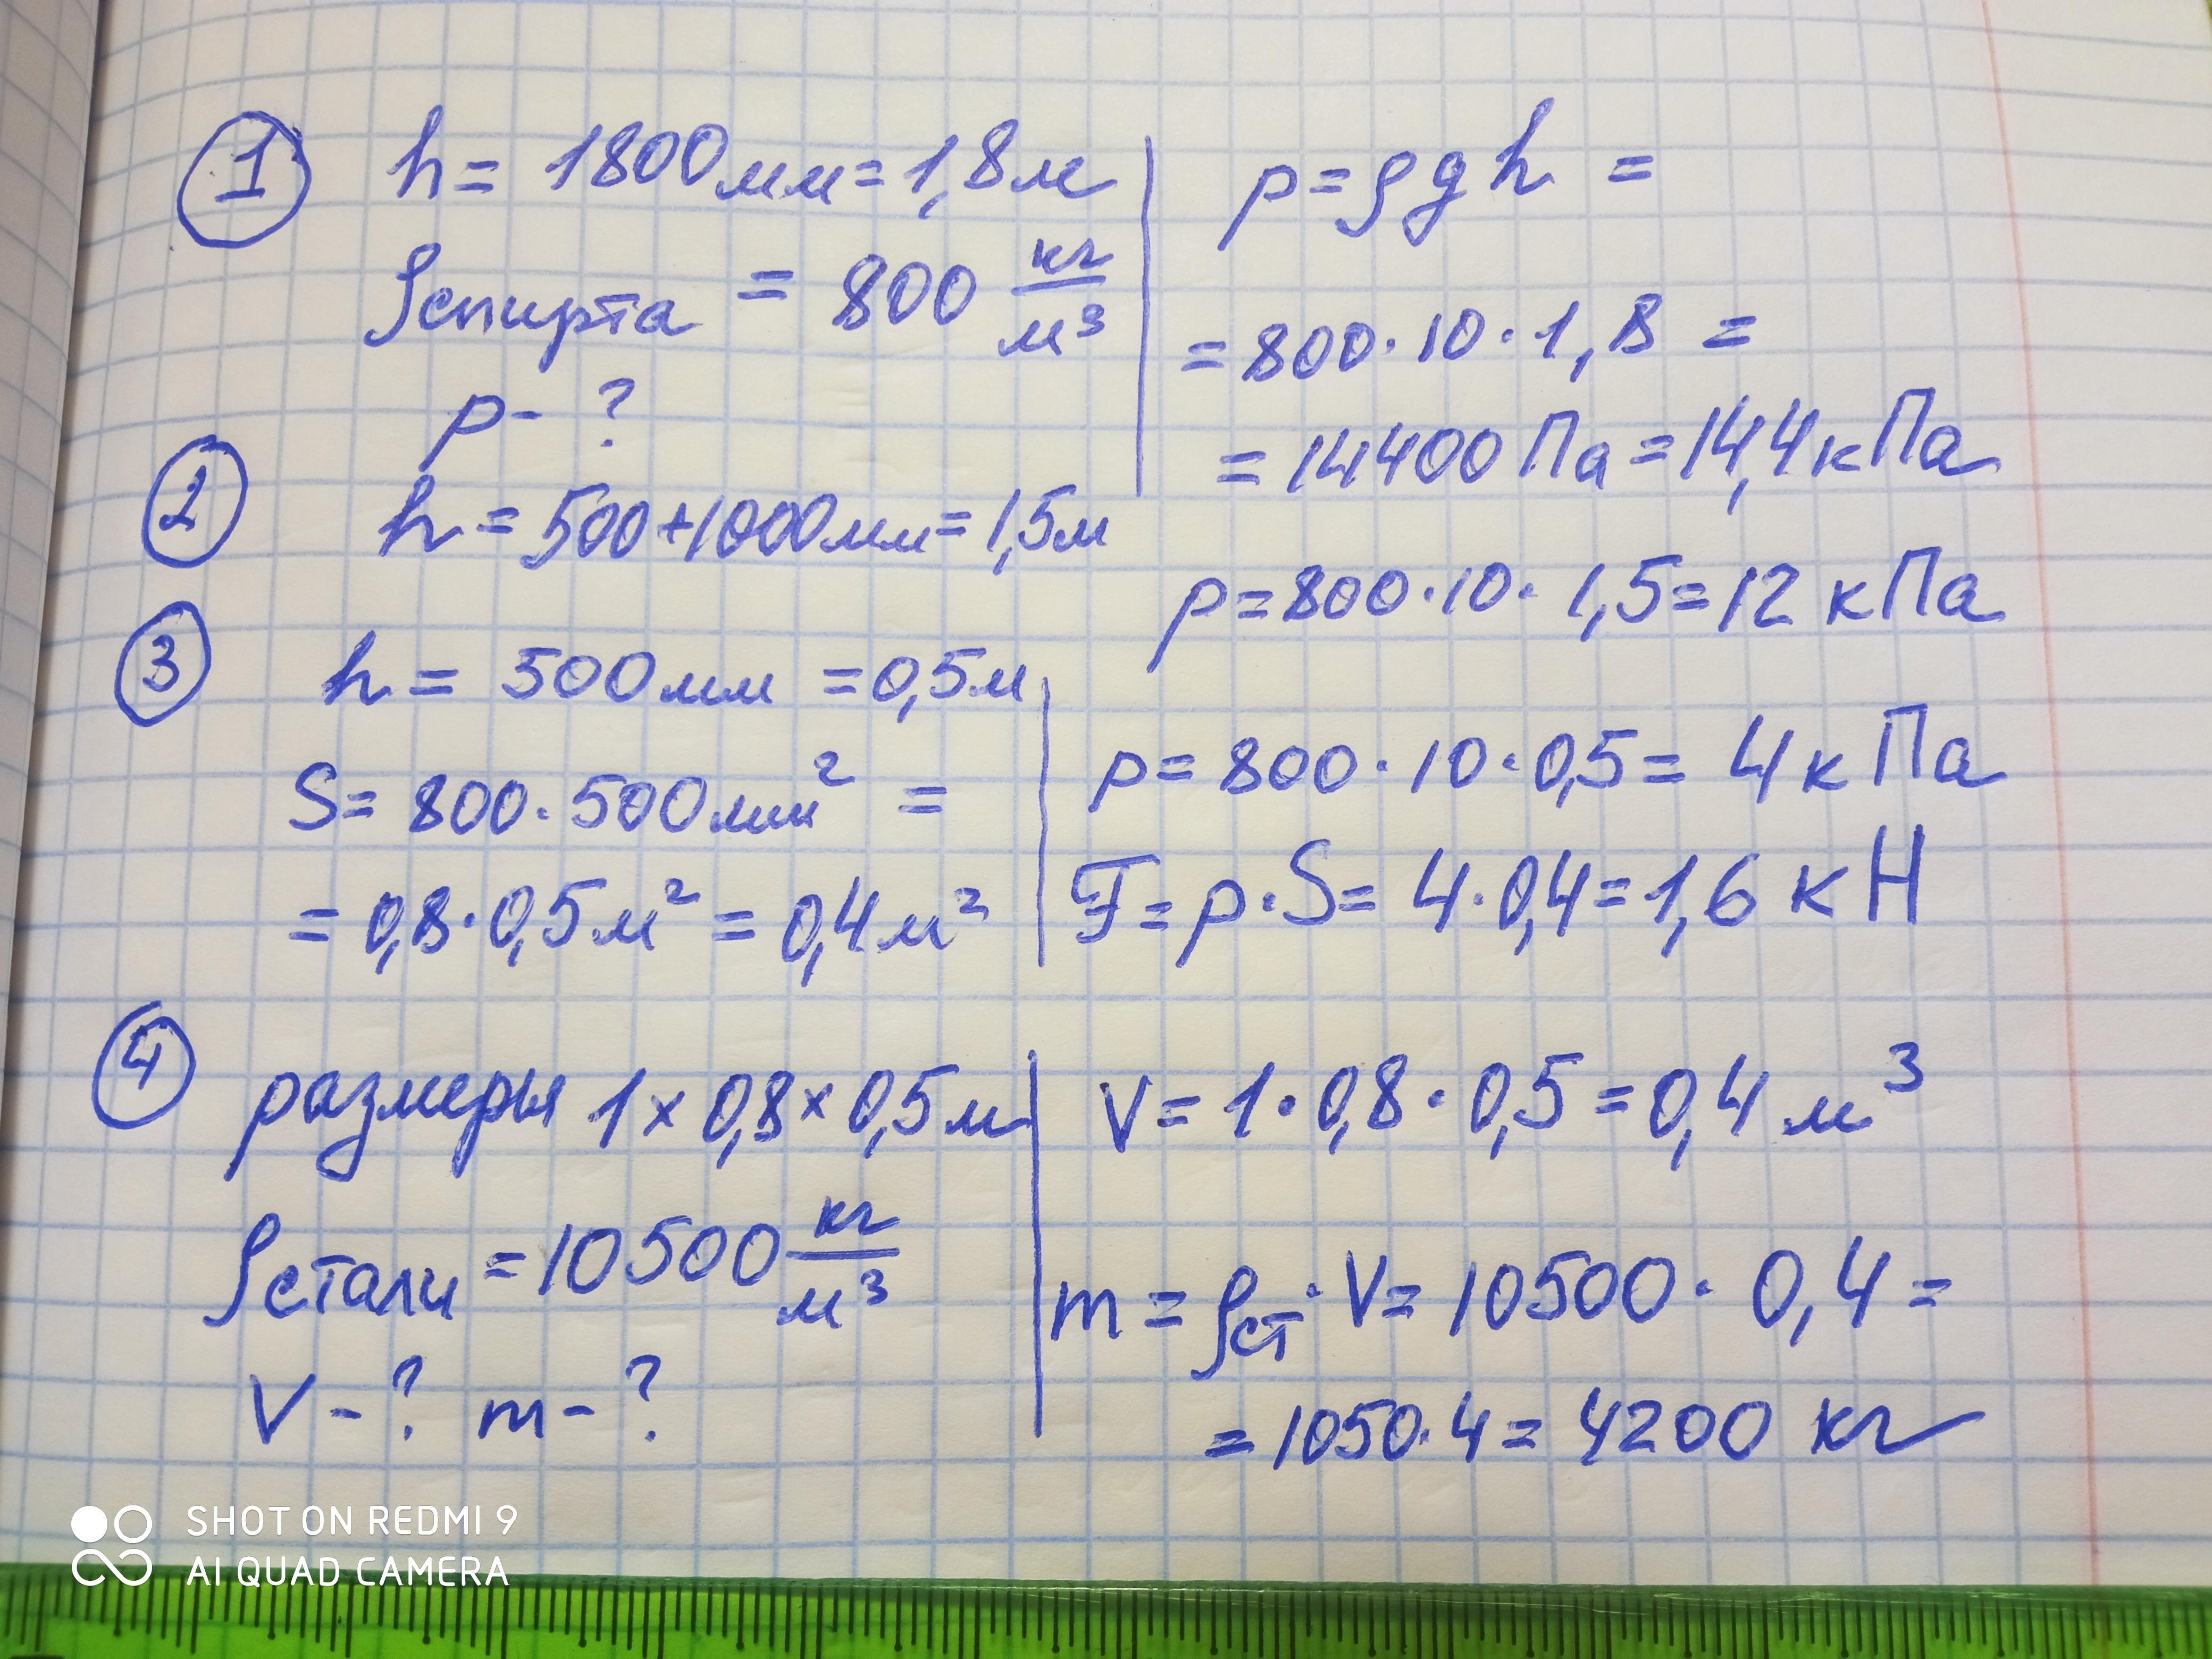 1 h = 1800мм = 1,8м
ρспирта = 800 кг/м³
p - ?
p = ρgh =
= 800 · 10 · 1,8 =
= 14400 Па = 14,4 кПа
2 h = 500+1000мм = 1,5м
p = 800 · 10 · 1,5 = 12 кПа
3 h = 500мм = 0,5м
S = 800 · 500мм² =
= 0,8 · 0,5м² = 0,4м²
p = 800 · 10 · 0,5 = 4 кПа
F = p · S = 4 · 0,4 = 1,6 кН
4 размеры 1 × 0,8 × 0,5м
ρстали = 10500 кг/м³
V - ? m - ?
V = 1 · 0,8 · 0,5 = 0,4 м³
m = ρст · V = 10500 · 0,4 =
= 1050 · 4 = 4200 кг
SHOT ON REDMI 9
AI QUAD CAMERA